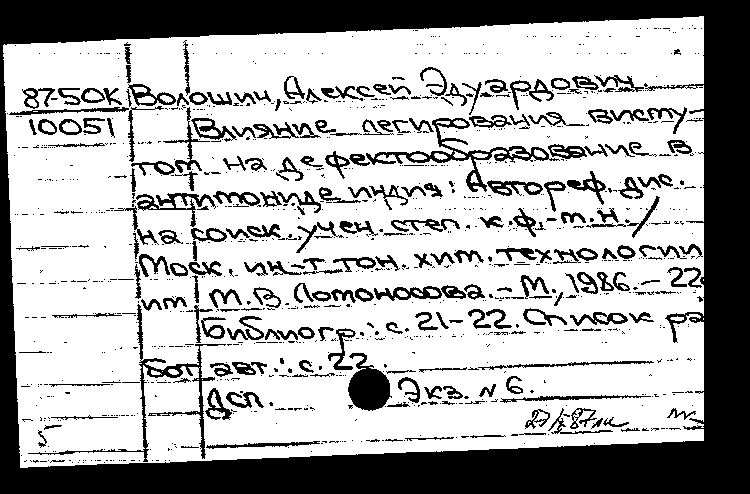 87-50К Волошин, Алексей Эдуардович.
10051 Влияние легирования висму-
том на дефектообразование в
антимониде индия: Автореф. дис.
на соиск. учен. степ. к.ф.-т.н. /
Моск. ин-т тон. хим. технологии
им М.В. Ломоносова. - М., 1986. - 22
Библиогр.: с. 21-22. Список ра
бот авт.: с. 22.
Дсп. Экз. N 6.
5